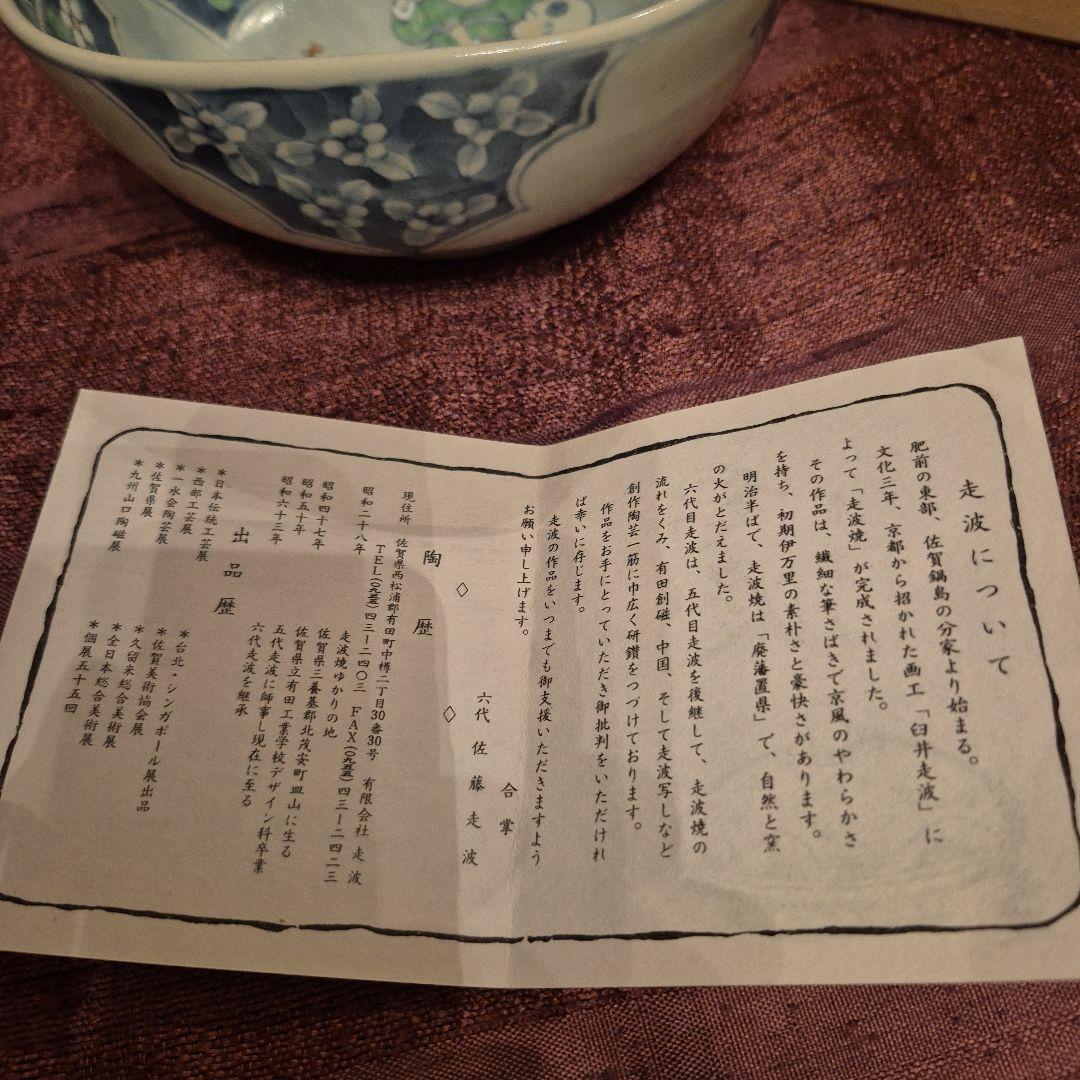 走波について
肥前の東部、佐賀鍋島の分家より始まる。
文化三年、京都から招かれた画工「臼井走波」に
よって「走波焼」が完成されました。
その作品は、繊細な筆さばきで京風のやわらかさ
を持ち、初期伊万里の素朴さと豪快さがあります。
明治半ばで、走波焼は「廃藩置県」で、自然と窯
の火がとだえました。
六代目走波は、五代目走波を後継して、走波焼の
流れをくみ、有田創磁、中国、そして走波写しなど
創作陶芸一筋に巾広く研鑽をつづけております。
作品をお手にとっていただき御批判をいただけれ
ば幸いに存じます。
走波の作品をいつまでも御支援いただきますよう
お願い申し上げます。
合掌
六代 佐藤走波
◇ ◇
陶歴
現住所 佐賀県西松浦郡有田町中樽二丁目30番30号 有限会社 走波
TEL(〇九五五)四三ー二四〇三 FAX(〇九五五)四三ー二四二三
昭和二十八年 走波焼ゆかりの地
佐賀県三養基郡北茂安町皿山に生る
昭和四十七年 佐賀県立有田工業学校デザイン科卒業
昭和五十年 五代走波に師事し現在に至る
昭和六十三年 六代走波を継承
出品歴
*日本伝統工芸展
*西部工芸展
*一水会陶芸展
*佐賀県展
*九州山口陶磁展
*台北・シンガポール展出品
*佐賀美術協会展
*久留米総合美術展
*全日本総合美術展
*個展五十五回